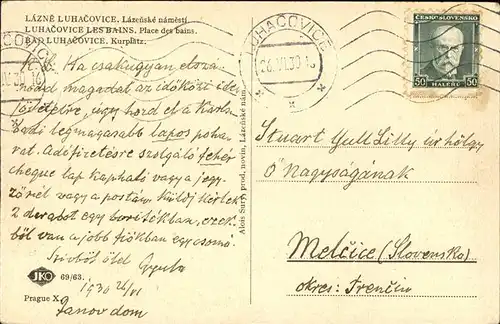 LÁZNĚ LUHAČOVICE. Lázeňské náměstí.
LUHAČOVICE LES BAINS. Place des bains.
BAD LUHAČOVICE. Kurplatz.
LUHAČOVICE
26.VI.30 16
ČESKOSLOVENSKO
50 HALÉŘŮ 50
Ha csakugyan elsza-
magadat az időközi ide
úgy hord el a Karls-
badi legmagasabb lapos poha-
rat. Adófizetésre szolgáló fehér
cheque lap kapható vagy a jegy-
zőnél vagy a postán. Küldj kérlek
2 darabot egy borítékban, ezek-
ből van a jobb fiókban egy csomó.
Szívből ölel Gyula
1930 26/VI
Janov dom
JKO 69/63.
Prague X.
Alois Surý, prod. novin, Lázeňské nám.
Stuart Yull Lilly úrhölgy
Ő Nagyságának
Melčice (Slovensko)
okres: Trenčín